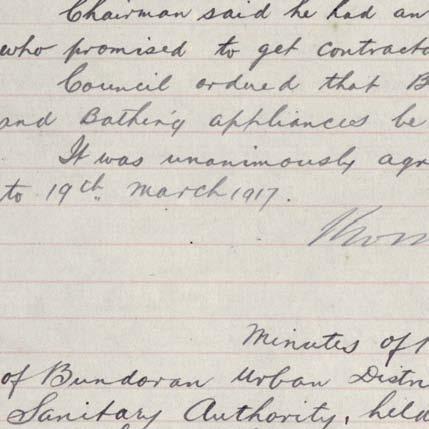 Chairman said he had an
who promised to get contracto
Council ordered that B
and Bathing appliances be
It was unanimously agr
to 19th March 1917.
Thom
Minutes of
of Bundoran Urban Distr
Sanitary Authority, held